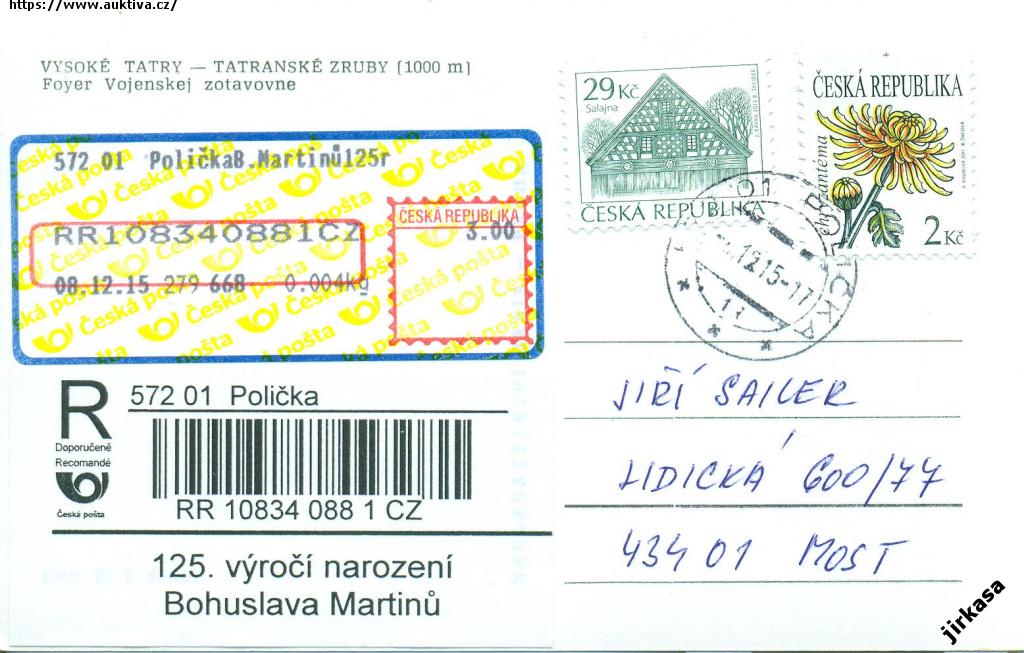 https://www.auktiva.cz/
VYSOKÉ TATRY — TATRANSKÉ ZRUBY (1000 m)
Foyer Vojenskej zotavovne
572 01 PoličkaB.Martinů125r
RR108340881CZ
08.12.15 279 668 0.004kg
ČESKÁ REPUBLIKA
3.00
Česká pošta
29 Kč
Salajna
ČESKÁ REPUBLIKA
ČESKÁ REPUBLIKA
chryzantéma
2 Kč
12.15-17
11
R
Doporučeně
Recomandé
Česká pošta
572 01 Polička
RR 10834 088 1 CZ
125. výročí narození
Bohuslava Martinů
JIŘÍ SAILER
LIDICKÁ 600/77
434 01 MOST
jirkasa